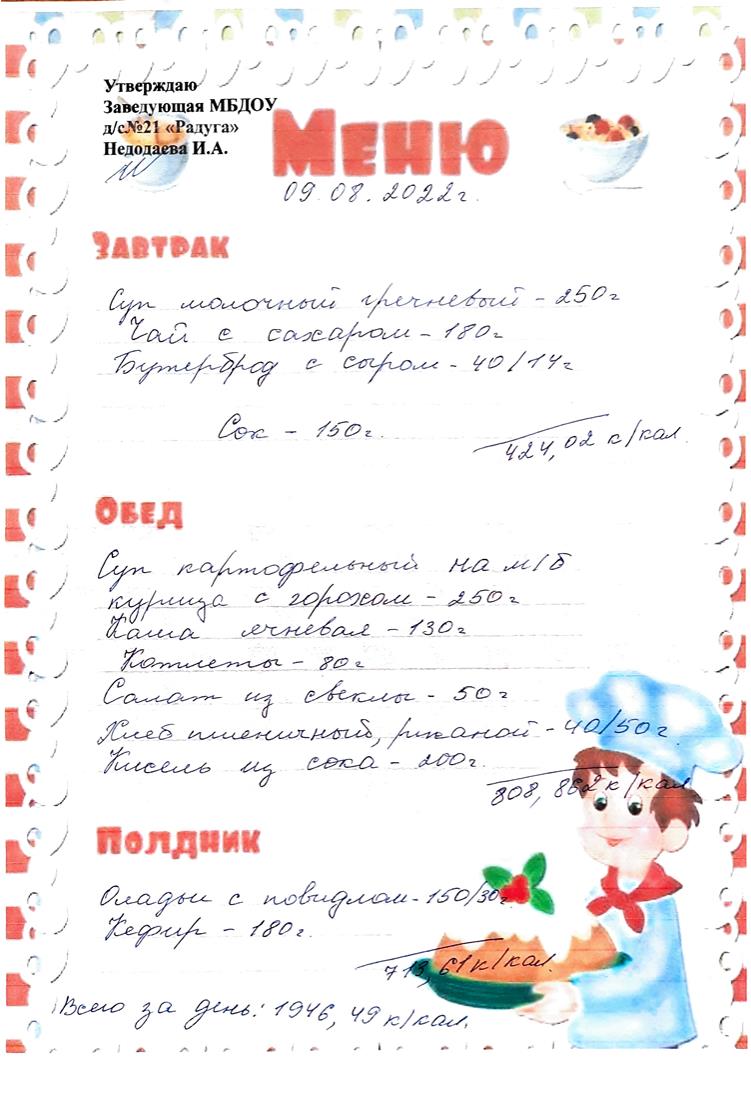 Утверждаю
Заведующая МБДОУ
д/с№21 «Радуга»
Недодаева И.А.
Меню
09.08.2022г.
Завтрак
Суп молочный гречневый - 250г
Чай с сахаром - 180г
Бутерброд с сыром - 40/14г
Сок - 150г.
424,02 к/кал.
Обед
Суп картофельный на м/б
курица с горохом - 250г
Каша ячневая - 130г
Котлеты - 80г
Салат из свеклы - 50г
Хлеб пшеничный, ржаной - 40/50г
Кисель из сока - 200г.
808,862 к/кал
Полдник
Оладьи с повидлом - 150/30г
Кефир - 180г.
713,61 к/кал.
Всего за день: 1946,49 к/кал.